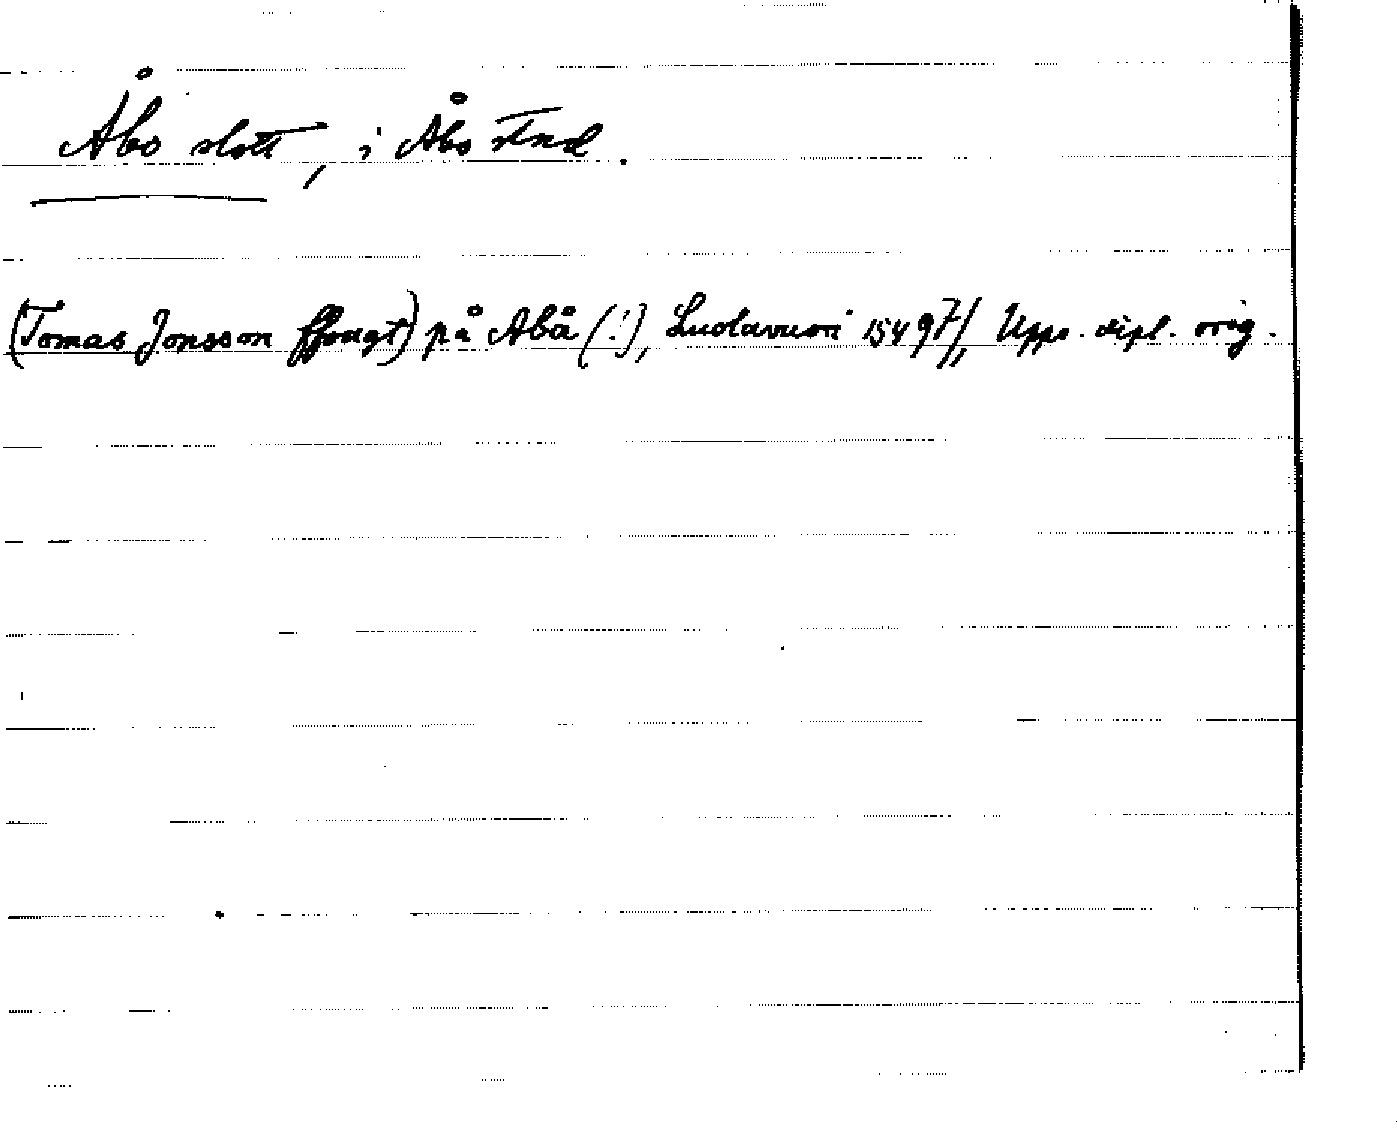 Åbo slott, i Åbo stad.
(Tomas Jonsson ffougt) på Abå (!), Luolavuori 1549 7/1, Upps. dipl. orig.